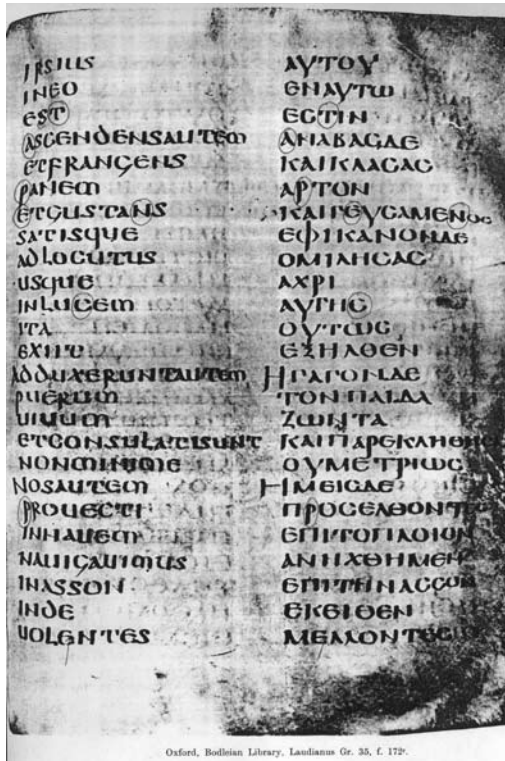 IPSIUS
INEO
EST
ASCENDENSAUTEM
ETFRANGENS
PANEM
ETGUSTANS
SATISQUE
ADLOCUTUS
USQUE
INLUCEM
ITA
EXIIT
ADDUXERUNTAUTEM
PUERUM
UIUUM
ETCONSULATISUNT
NONMINIME
NOSAUTEM
PROUECTI
INNAUEM
NAUIGAUIMUS
INASSON
INDE
UOLENTES
ΑΥΤΟΥ
ΕΝΑΥΤΩ
ΕϹΤΙΝ
ΑΝΑΒΑϹΔΕ
ΚΑΙΚΛΑϹΑϹ
ΑΡΤΟΝ
ΚΑΙΓΕΥϹΑΜΕΝΟϹ
ΕΦΙΚΑΝΟΝΔΕ
ΟΜΙΛΗϹΑϹ
ΑΧΡΙ
ΑΥΓΗϹ
ΟΥΤΩϹ
ΕΞΗΛΘΕΝ
ΗΓΑΓΟΝΔΕ
ΤΟΝΠΑΙΔΑ
ΖΩΝΤΑ
ΚΑΙΠΑΡΕΚΛΗΘΗϹ
ΟΥΜΕΤΡΙΩϹ
ΗΜΕΙϹΔΕ
ΠΡΟϹΕΛΘΟΝΤΕϹ
ΕΠΙΤΟΠΛΟΙΟΝ
ΑΝΗΧΘΗΜΕΝ
ΕΠΙΤΗΝΑϹϹΟΝ
ΕΚΕΙΘΕΝ
ΜΕΛΛΟΝΤΕϹ
Oxford, Bodleian Library, Laudianus Gr. 35, f. 172v.